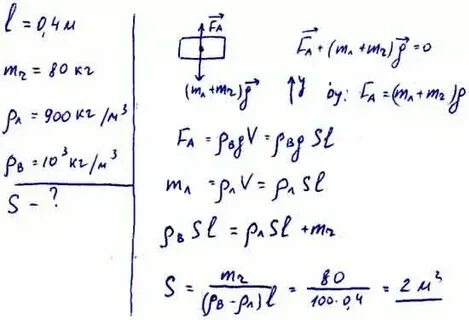 l = 0,4 м
mч = 80 кг
ρл = 900 кг/м³
ρв = 10³ кг/м³
S – ?
F⃗А
(mл + mч)g⃗
F⃗А + (mл + mч)g⃗ = 0
↑y оу: FА = (mл + mч)g
FА = ρвgV = ρвg Sl
mл = ρлV = ρлSl
ρв Sl = ρлSl + mч
S = mч / (ρв – ρл)l = 80 / 100·0,4 = 2 м²